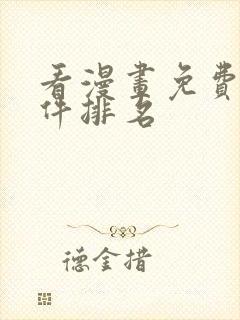 看漫畫免費
件排名
德金措